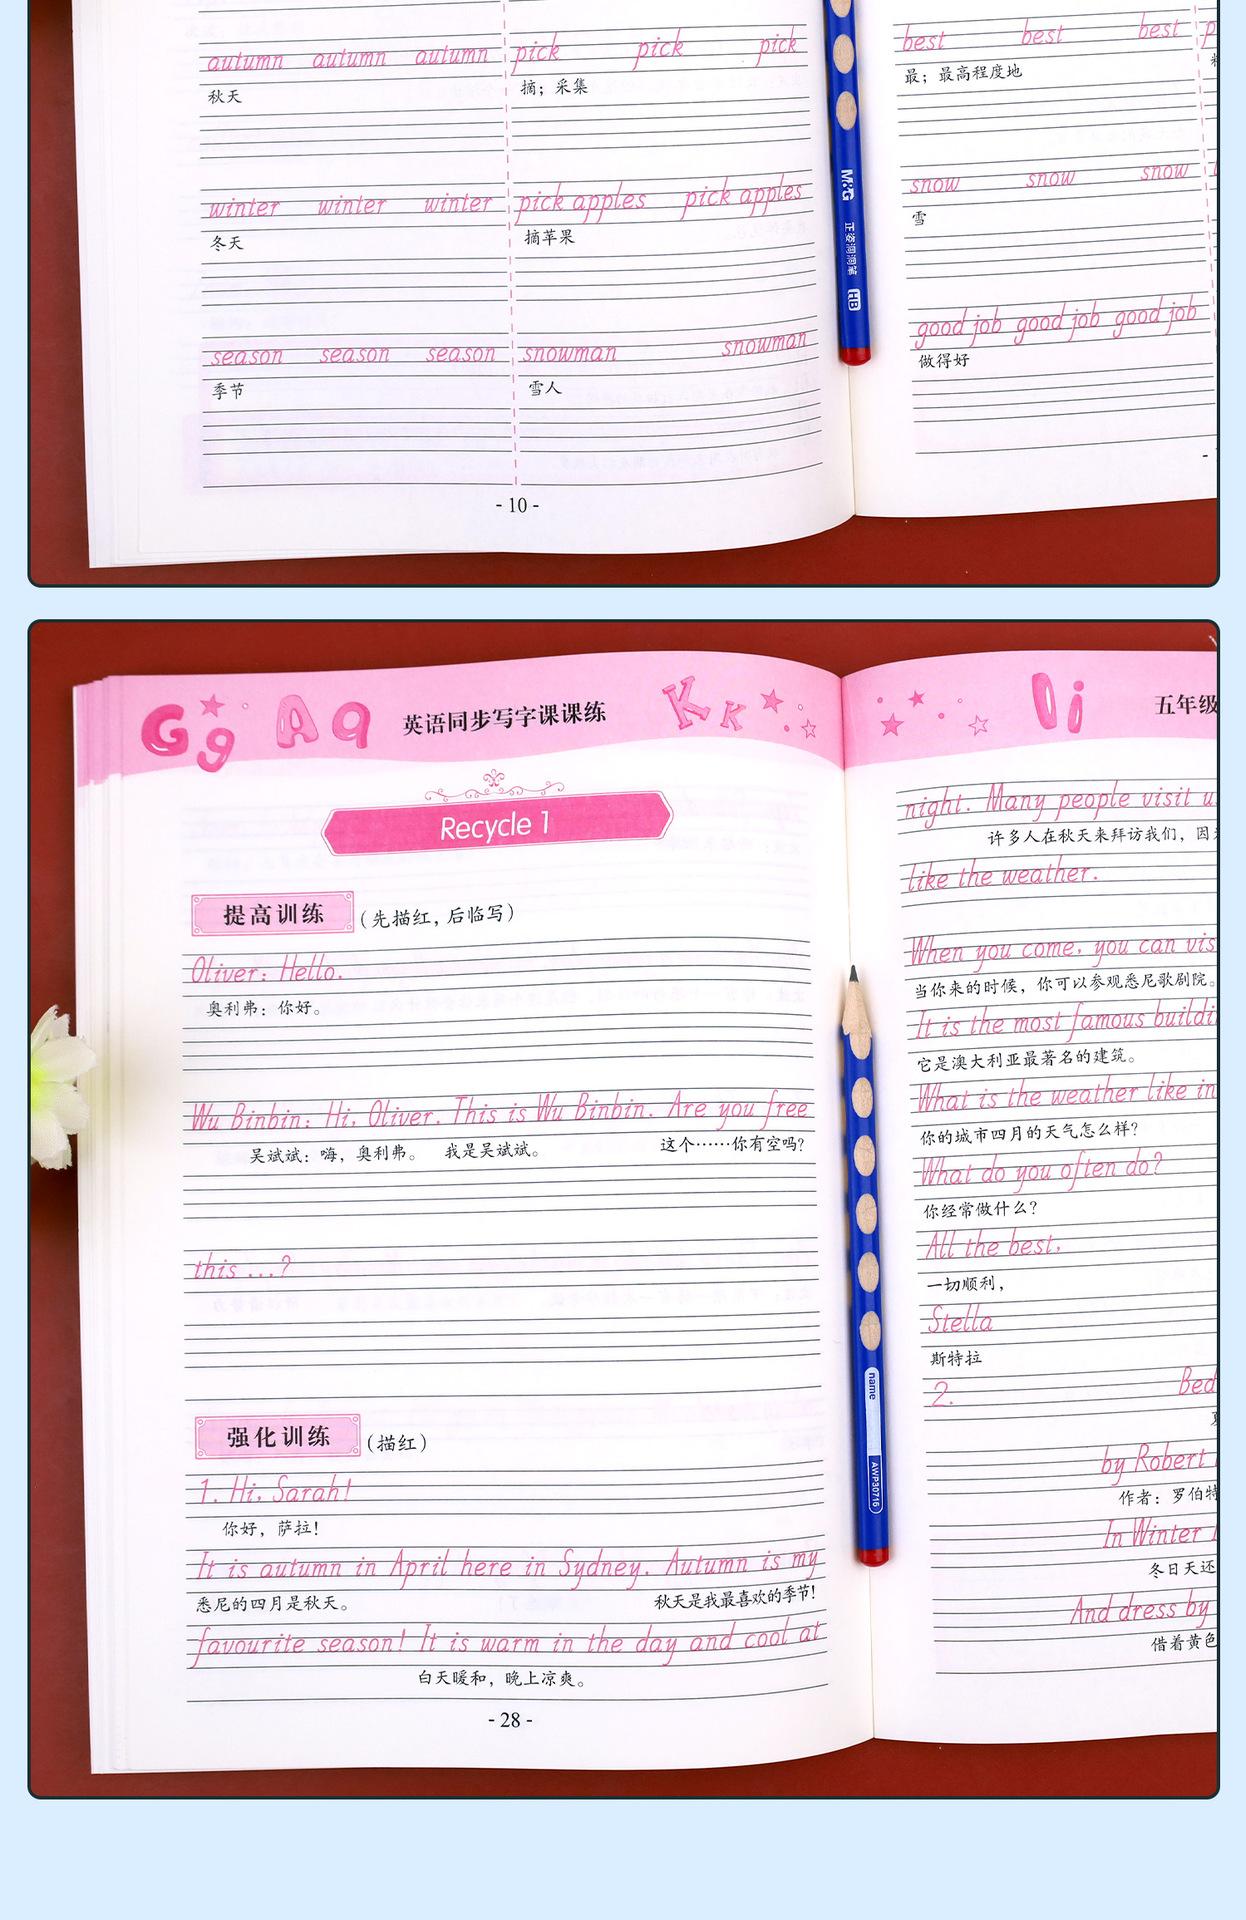 autumn autumn autumn
秋天
pick pick pick
摘；采集
winter winter winter
冬天
pick apples pick apples
摘苹果
season season season
季节
snowman snowman
雪人
- 10 -
best best best
最；最高程度地
snow snow snow
雪
good job good job good job
做得好
M&G 正姿洞洞笔 HB
Gg Aa 英语同步写字课课练 Kk
Recycle 1
提高训练（先描红，后临写）
Oliver: Hello.
奥利弗：你好。
Wu Binbin: Hi, Oliver. This is Wu Binbin. Are you free
吴斌斌：嗨，奥利弗。 我是吴斌斌。 这个……你有空吗？
this ...?
强化训练（描红）
1. Hi, Sarah!
你好，萨拉！
It is autumn in April here in Sydney. Autumn is my
悉尼的四月是秋天。 秋天是我最喜欢的季节！
favourite season! It is warm in the day and cool at
白天暖和，晚上凉爽。
- 28 -
name AWP30716
五年级
night. Many people visit
许多人在秋天来拜访我们，
like the weather.
When you come, you can
当你来的时候，你可以参观悉尼歌剧院。
It is the most famous
它是澳大利亚最著名的建筑。
What is the weather like in
你的城市四月的天气怎么样？
What do you often do?
你经常做什么？
All the best,
一切顺利，
Stella
斯特拉
2. Bed
by Robert
作者：罗伯特
In Winter
冬日天还
And dress by
借着黄色